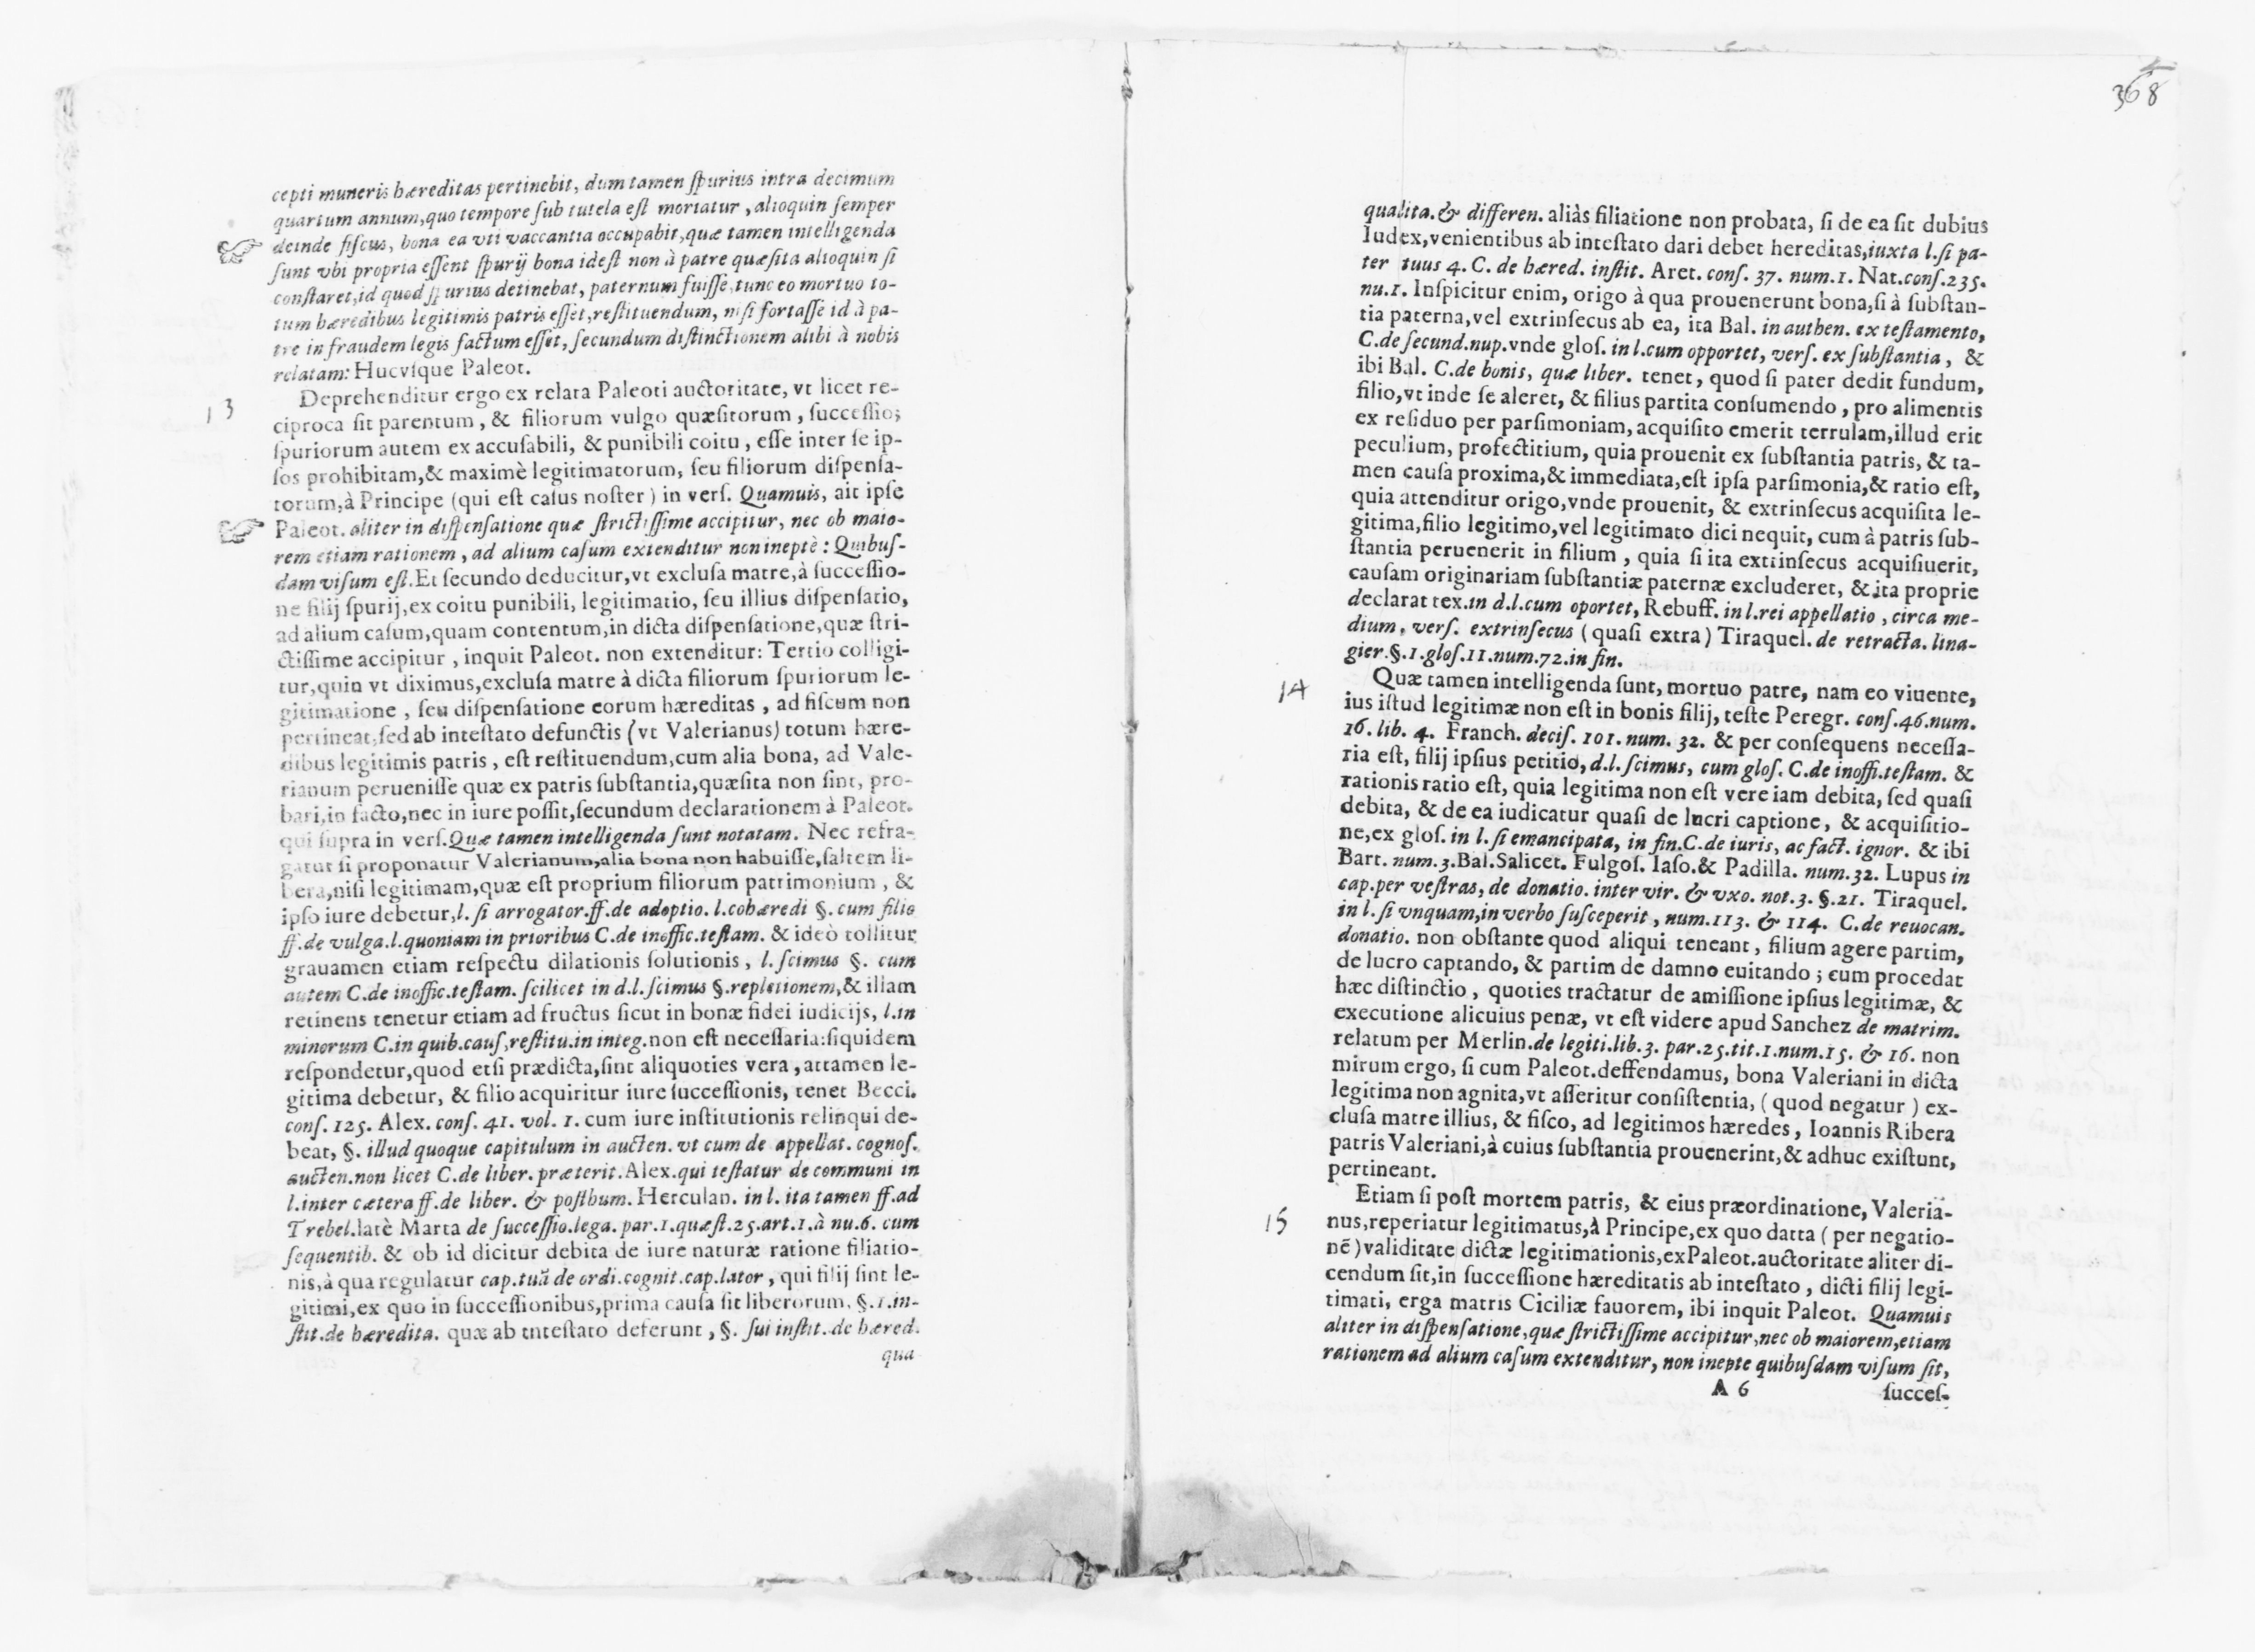 cepti muneris hæreditas pertinebit, dum tamen ſpurius intra decimum
quartum annum, quo tempore ſub tutela eſt moriatur, alioquin ſemper
deinde fiſcus, bona ea vti vaccantia occupabit, quæ tamen intelligenda
ſunt vbi propria eſſent ſpurij bona ideſt non à patre quæſita alioquin ſi
conſtaret, id quod ſpurius detinebat, paternum fuiſſe, tunc eo mortuo to-
tum hæredibus legitimis patris eſſet, reſtituendum, niſi fortaſſe id à pa-
tre in fraudem legis factum eſſet, ſecundum diſtinctionem alibi à nobis
relatam: Hucvſque Paleot.
13
Deprehenditur ergo ex relata Paleoti auctoritate, vt licet re-
ciproca ſit parentum, & filiorum vulgo quæſitorum, ſucceſſio;
ſpuriorum autem ex accuſabili, & punibili coitu, eſſe inter ſe ip-
ſos prohibitam, & maximè legitimatorum, ſeu filiorum diſpenſa-
torum, à Principe (qui eſt caſus noſter) in verſ. Quamuis, ait ipſe
Paleot. aliter in diſpenſatione quæ ſtrictiſſime accipitur, nec ob maio-
rem etiam rationem, ad alium caſum extenditur non ineptè: Quibuſ-
dam viſum eſt. Et ſecundo deducitur, vt excluſa matre, à ſucceſſio-
ne filij ſpurij, ex coitu punibili, legitimatio, ſeu illius diſpenſatio,
ad alium caſum, quam contentum, in dicta diſpenſatione, quæ ſtri-
ctiſſime accipitur, inquit Paleot. non extenditur: Tertio colligi-
tur, quin vt diximus, excluſa matre à dicta filiorum ſpuriorum le-
gitimatione, ſeu diſpenſatione eorum hæreditas, ad fiſcum non
pertineat, ſed ab inteſtato defunctis (vt Valerianus) totum hære-
dibus legitimis patris, eſt reſtituendum, cum alia bona, ad Vale-
rianum perueniſſe quæ ex patris ſubſtantia, quæſita non ſint, pro-
bari, in facto, nec in iure poſſit, ſecundum declarationem à Paleot.
qui ſupra in verſ. Quæ tamen intelligenda ſunt notatam. Nec refra-
gatur ſi proponatur Valerianum, alia bona non habuiſſe, ſaltem li-
bera, niſi legitimam, quæ eſt proprium filiorum patrimonium, &
ipſo iure debetur, l. ſi arrogator. ff. de adoptio. l. cohæredi §. cum filio
ff. de vulga. l. quoniam in prioribus C. de inoffic. teſtam. & ideò tollitur
grauamen etiam reſpectu dilationis ſolutionis, l. ſcimus §. cum
autem C. de inoffic. teſtam. ſcilicet in d. l. ſcimus §. repletionem, & illam
retinens tenetur etiam ad fructus ſicut in bonæ fidei iudicijs, l. in
minorum C. in quib. cauſ. reſtitu. in integ. non eſt neceſſaria: ſiquidem
reſpondetur, quod etſi prædicta, ſint aliquoties vera, attamen le-
gitima debetur, & filio acquiritur iure ſucceſſionis, tenet Becci.
conſ. 125. Alex. conſ. 41. vol. 1. cum iure inſtitutionis relinqui de-
beat, §. illud quoque capitulum in aucten. vt cum de appellat. cognoſ.
aucten. non licet C. de liber. præterit. Alex. qui teſtatur de communi in
l. inter cætera ff. de liber. & poſthum. Herculan. in l. ita tamen ff. ad
Trebel. latè Marta de ſucceſſio. lega. par. 1. quæſt. 25. art. 1. à nu. 6. cum
ſequentib. & ob id dicitur debita de iure naturæ ratione filiatio-
nis, à qua regulatur cap. tuā de ordi. cognit. cap. lator, qui filij ſint le-
gitimi, ex quo in ſucceſſionibus, prima cauſa ſit liberorum, §. 1. in-
ſtit. de hæredita. quæ ab inteſtato deferunt, §. ſui inſtit. de hæred.
qua
368
qualita. & differen. aliàs filiatione non probata, ſi de ea ſit dubius
Iudex, venientibus ab inteſtato dari debet hereditas, iuxta l. ſi pa-
ter tuus 4. C. de hæred. inſtit. Aret. conſ. 37. num. 1. Nat. conſ. 235.
nu. 1. Inſpicitur enim, origo à qua prouenerunt bona, ſi à ſubſtan-
tia paterna, vel extrinſecus ab ea, ita Bal. in authen. ex teſtamento,
C. de ſecund. nup. vnde gloſ. in l. cum opportet, verſ. ex ſubſtantia, &
ibi Bal. C. de bonis, quæ liber. tenet, quod ſi pater dedit fundum,
filio, vt inde ſe aleret, & filius partita conſumendo, pro alimentis
ex reſiduo per parſimoniam, acquiſito emerit terrulam, illud erit
peculium, profectitium, quia prouenit ex ſubſtantia patris, & ta-
men cauſa proxima, & immediata, eſt ipſa parſimonia, & ratio eſt,
quia attenditur origo, vnde prouenit, & extrinſecus acquiſita le-
gitima, filio legitimo, vel legitimato dici nequit, cum à patris ſub-
ſtantia peruenerit in filium, quia ſi ita extrinſecus acquiſiuerit,
cauſam originariam ſubſtantiæ paternæ excluderet, & ita proprie
declarat tex. in d. l. cum oportet, Rebuff. in l. rei appellatio, circa me-
dium, verſ. extrinſecus (quaſi extra) Tiraquel. de retracta. lina-
gier. §. 1. gloſ. 11. num. 72. in fin.
14
Quæ tamen intelligenda ſunt, mortuo patre, nam eo viuente,
ius iſtud legitimæ non eſt in bonis filij, teſte Peregr. conſ. 46. num.
16. lib. 4. Franch. deciſ. 101. num. 32. & per conſequens neceſſa-
ria eſt, filij ipſius petitio, d. l. ſcimus, cum gloſ. C. de inoffi. teſtam. &
rationis ratio eſt, quia legitima non eſt vere iam debita, ſed quaſi
debita, & de ea iudicatur quaſi de lucri captione, & acquiſitio-
ne, ex gloſ. in l. ſi emancipata, in fin. C. de iuris, ac fact. ignor. & ibi
Bart. num. 3. Bal. Salicet. Fulgoſ. Iaſo. & Padilla. num. 32. Lupus in
cap. per veſtras, de donatio. inter vir. & vxo. not. 3. §. 21. Tiraquel.
in l. ſi vnquam, in verbo ſuſceperit, num. 113. & 114. C. de reuocan.
donatio. non obſtante quod aliqui teneant, filium agere partim,
de lucro captando, & partim de damno euitando; cum procedat
hæc diſtinctio, quoties tractatur de amiſſione ipſius legitimæ, &
executione alicuius penæ, vt eſt videre apud Sanchez de matrim.
relatum per Merlin. de legiti. lib. 3. par. 25. tit. 1. num. 15. & 16. non
mirum ergo, ſi cum Paleot. deffendamus, bona Valeriani in dicta
legitima non agnita, vt aſſeritur conſiſtentia, (quod negatur) ex-
cluſa matre illius, & fiſco, ad legitimos hæredes, Ioannis Ribera
patris Valeriani, à cuius ſubſtantia prouenerint, & adhuc exiſtunt,
pertineant.
15
Etiam ſi poſt mortem patris, & eius præordinatione, Valeria-
nus, reperiatur legitimatus, à Principe, ex quo datta (per negatio-
nē) validitate dictæ legitimationis, ex Paleot. auctoritate aliter di-
cendum ſit, in ſucceſſione hæreditatis ab inteſtato, dicti filij legi-
timati, erga matris Ciciliæ fauorem, ibi inquit Paleot. Quamuis
aliter in diſpenſatione, quæ ſtrictiſſime accipitur, nec ob maiorem, etiam
rationem ad alium caſum extenditur, non inepte quibuſdam viſum ſit,
A 6 ſucceſ-